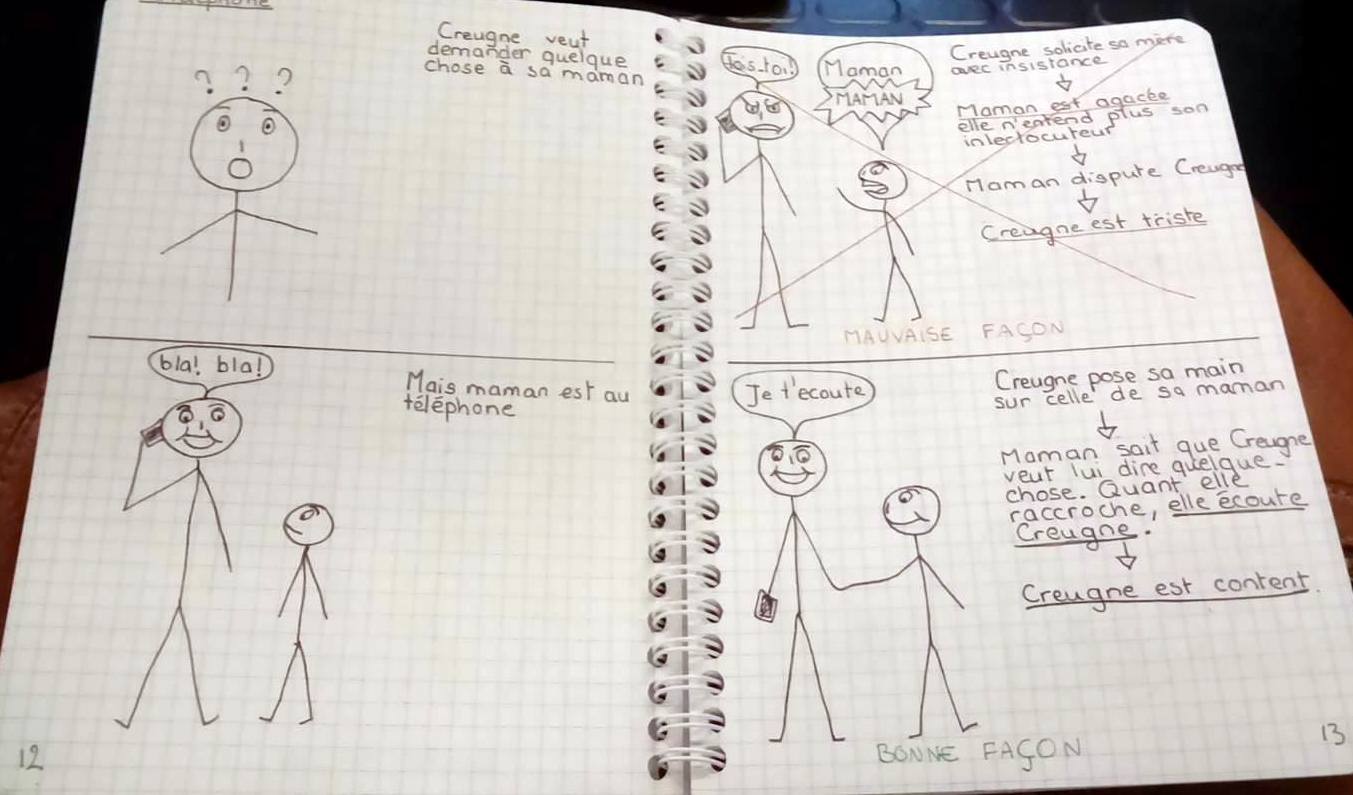 Creugne veut
demander quelque
chose à sa maman
? ? ?
bla! bla!
Mais maman est au
téléphone
12
Tais-toi!
Maman
MAMAN
Creugne solicite sa mère
avec insistance
Maman est agacée
elle n'entend plus son
interlocuteur
Maman dispute Creugne
Creugne est triste
MAUVAISE FAÇON
Je t'ecoute
Creugne pose sa main
sur celle de sa maman
Maman sait que Creugne
veut lui dire quelque-
chose. Quant elle
raccroche, elle écoute
Creugne.
Creugne est content.
BONNE FAÇON
13